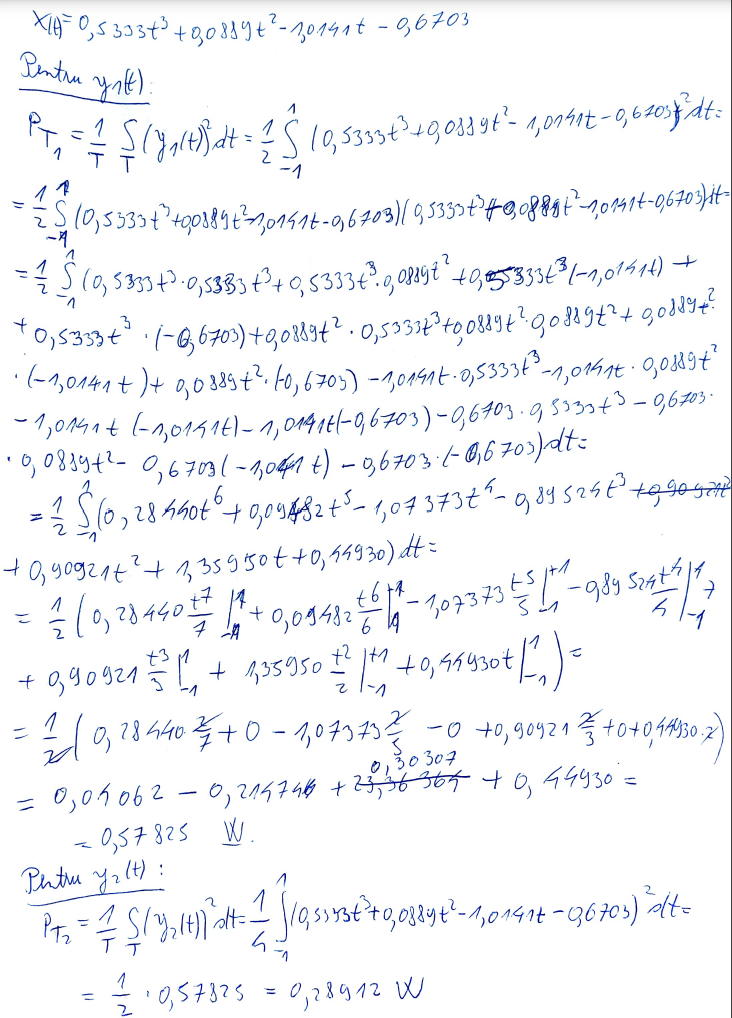 X(t)=0,5333t³+0,0889t²-1,0141t-0,6703
Pentru y₁(t):
P_T₁ = 1/T ∫_T (y₁(t))² dt = 1/2 ∫_-1^1 (0,5333t³+0,0889t²-1,0141t-0,6703)² dt=
= 1/2 ∫_-1^1 (0,5333t³+0,0889t²-1,0141t-0,6703)(0,5333t³+0,0889t²-1,0141t-0,6703)dt=
= 1/2 ∫_-1^1 (0,5333t³·0,5333t³+0,5333t³·0,0889t²+0,5333t³(-1,0141t) +
+ 0,5333t³·(-0,6703)+0,0889t²·0,5333t³+0,0889t²·0,0889t²+0,0889t²·
·(-1,0141t)+0,0889t²·(-0,6703)-1,0141t·0,5333t³-1,0141t·0,0889t²
-1,0141t(-1,0141t)-1,0141t(-0,6703)-0,6703·0,5333t³-0,6703·
·0,0889t²-0,6703(-1,0141t)-0,6703·(-0,6703))dt=
= 1/2 ∫_-1^1 (0,28440t⁶+0,09482t⁵-1,07373t⁴-0,89524t³
+0,90921t²+1,35950t+0,44930)dt=
= 1/2 (0,28440 t⁷/7 |_-1^1 + 0,09482 t⁶/6 |_-1^1 - 1,07373 t⁵/5 |_-1^+1 - 0,89524 t⁴/4 |_-1^1 +
+ 0,90921 t³/3 |_-1^1 + 1,35950 t²/2 |_-1^+1 + 0,44930t |_-1^1) =
= 1/2 (0,28440·2/7+0-1,07373 2/5 -0+0,90921 2/3+0+0,44930·2)
= 0,04062 - 0,214746 + 0,30307 + 0,44930 =
= 0,57825 W.
Pentru y₂(t):
P_T₂ = 1/T ∫_T (y₂(t))² dt= 1/4 ∫_-1^1 (0,5333t³+0,0889t²-1,0141t-0,6703)² dt=
= 1/2 · 0,57825 = 0,28912 W